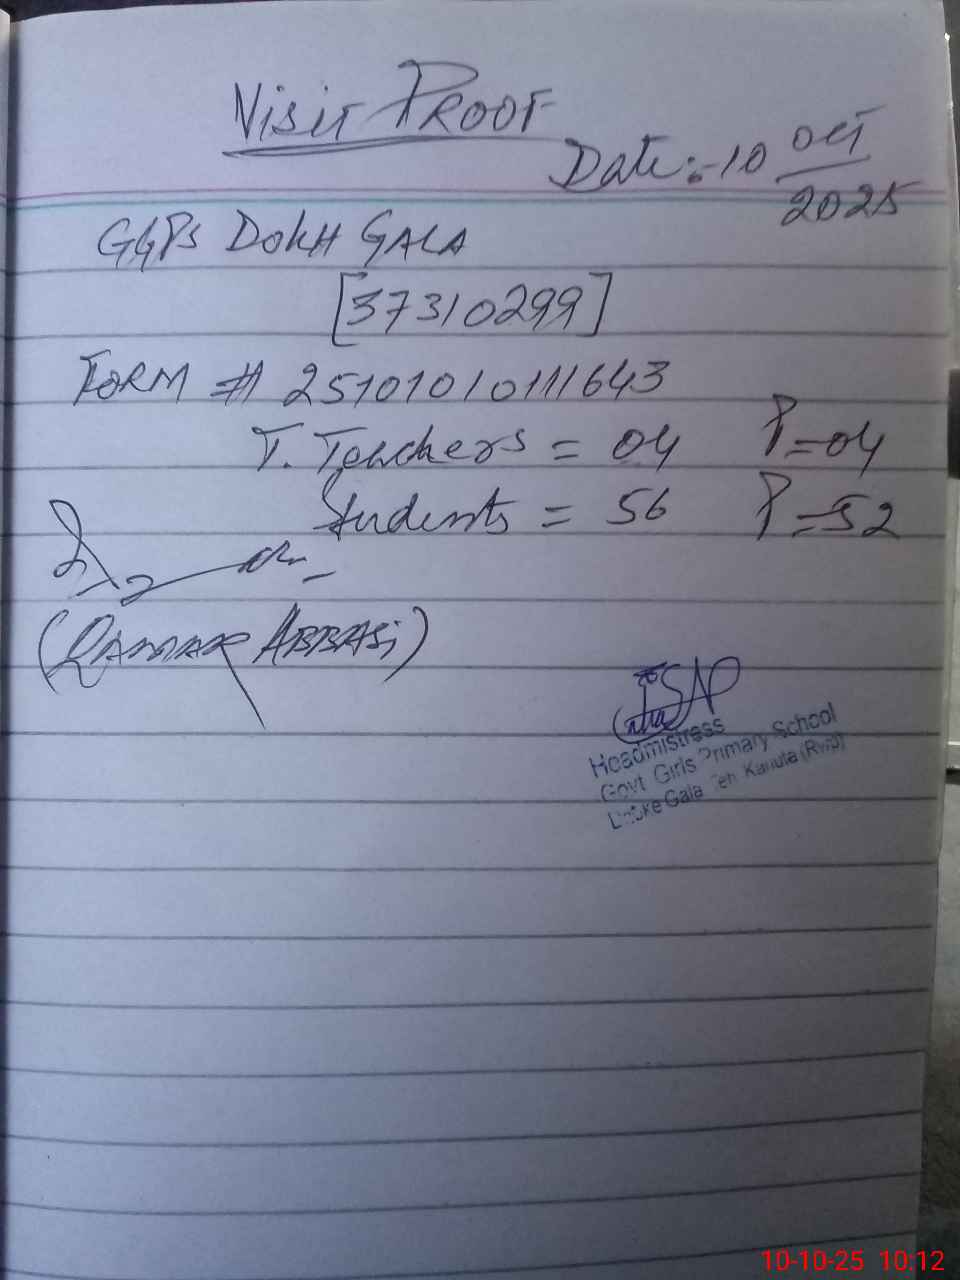 VISIT PROOF
Date:- 10 Oct
2025
GGPS DOKH GALA
[37310299]
FORM # 25101010111643
T. Teachers = 04 P=04
Students = 56 P=52
(QAMAR ABBASi)
Headmistress
Govt Girls Primary School
Dhoke Gala Teh Kahuta (Rwp)
10-10-25 10:12